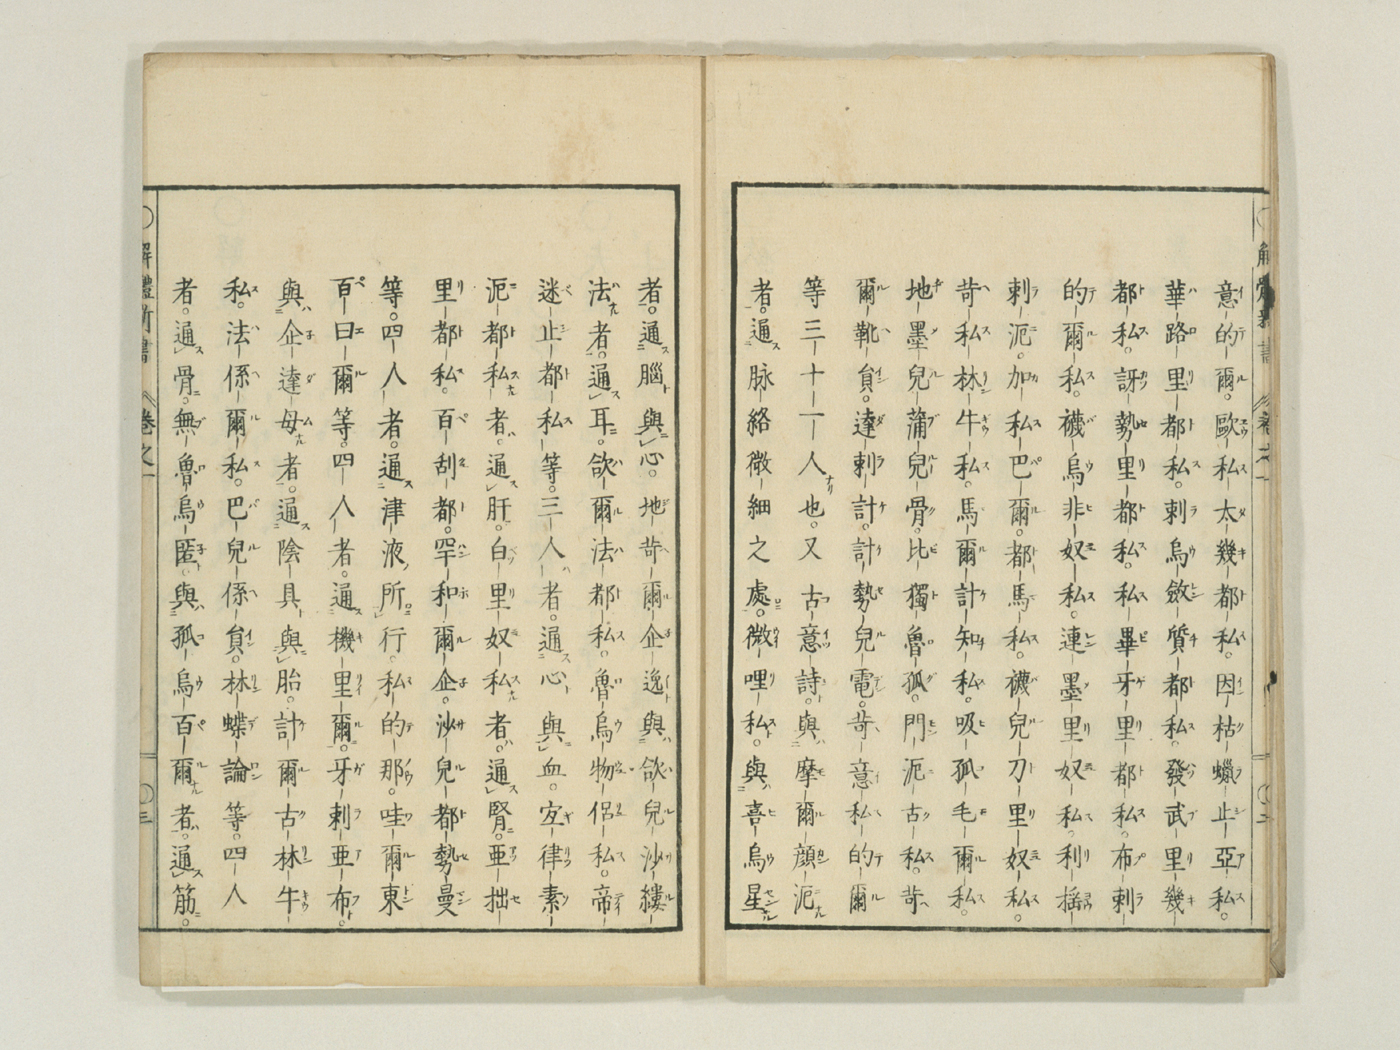 意的爾。歐私太幾都私。因枯蠟止亞私。
華路里都私。剌烏斂質都私。發武里幾
都私。訝勢里都私。私畢牙里都私。布剌
的爾私。襪烏非奴私。連墨里奴私。利揺
剌泥。加私巴爾。都馬私。襪兒刀里奴私。
苛私林牛私。馬爾計知私。吸孤毛爾私。
地墨兒蒲兒骨。比獨魯孤。門泥古私。苛
爾靴貟。達剌計。計勢兒電。苛意私的爾
等三十一人也。又古意詩。與摩爾顔泥
者。通脉絡微細之處。微哩私。與喜烏星
解體新書 卷之一 〇二
者。通腦與心。地苛爾企逸與欲兒沙縷
法者。通耳。欲爾法都私。魯烏物侶私。帝
迷止都私等。三人者。通心與血。宐律素
泥都私者。通肝。白里奴私者。通腎。亜拙
里都私。百刮都。罕和爾企。沙兒都勢曼
等。四人者。通津液所行。私的那。哇爾東
百。曰爾等。四人者。通機里爾。牙剌亜布。
與企達母者。通陰具與胎。計爾古林牛
私。法係爾私。巴兒係貟。林蝶論等。四人
者。通骨。無魯烏匿。與孤烏百爾者。通筋。
解體新書 卷之一 〇三